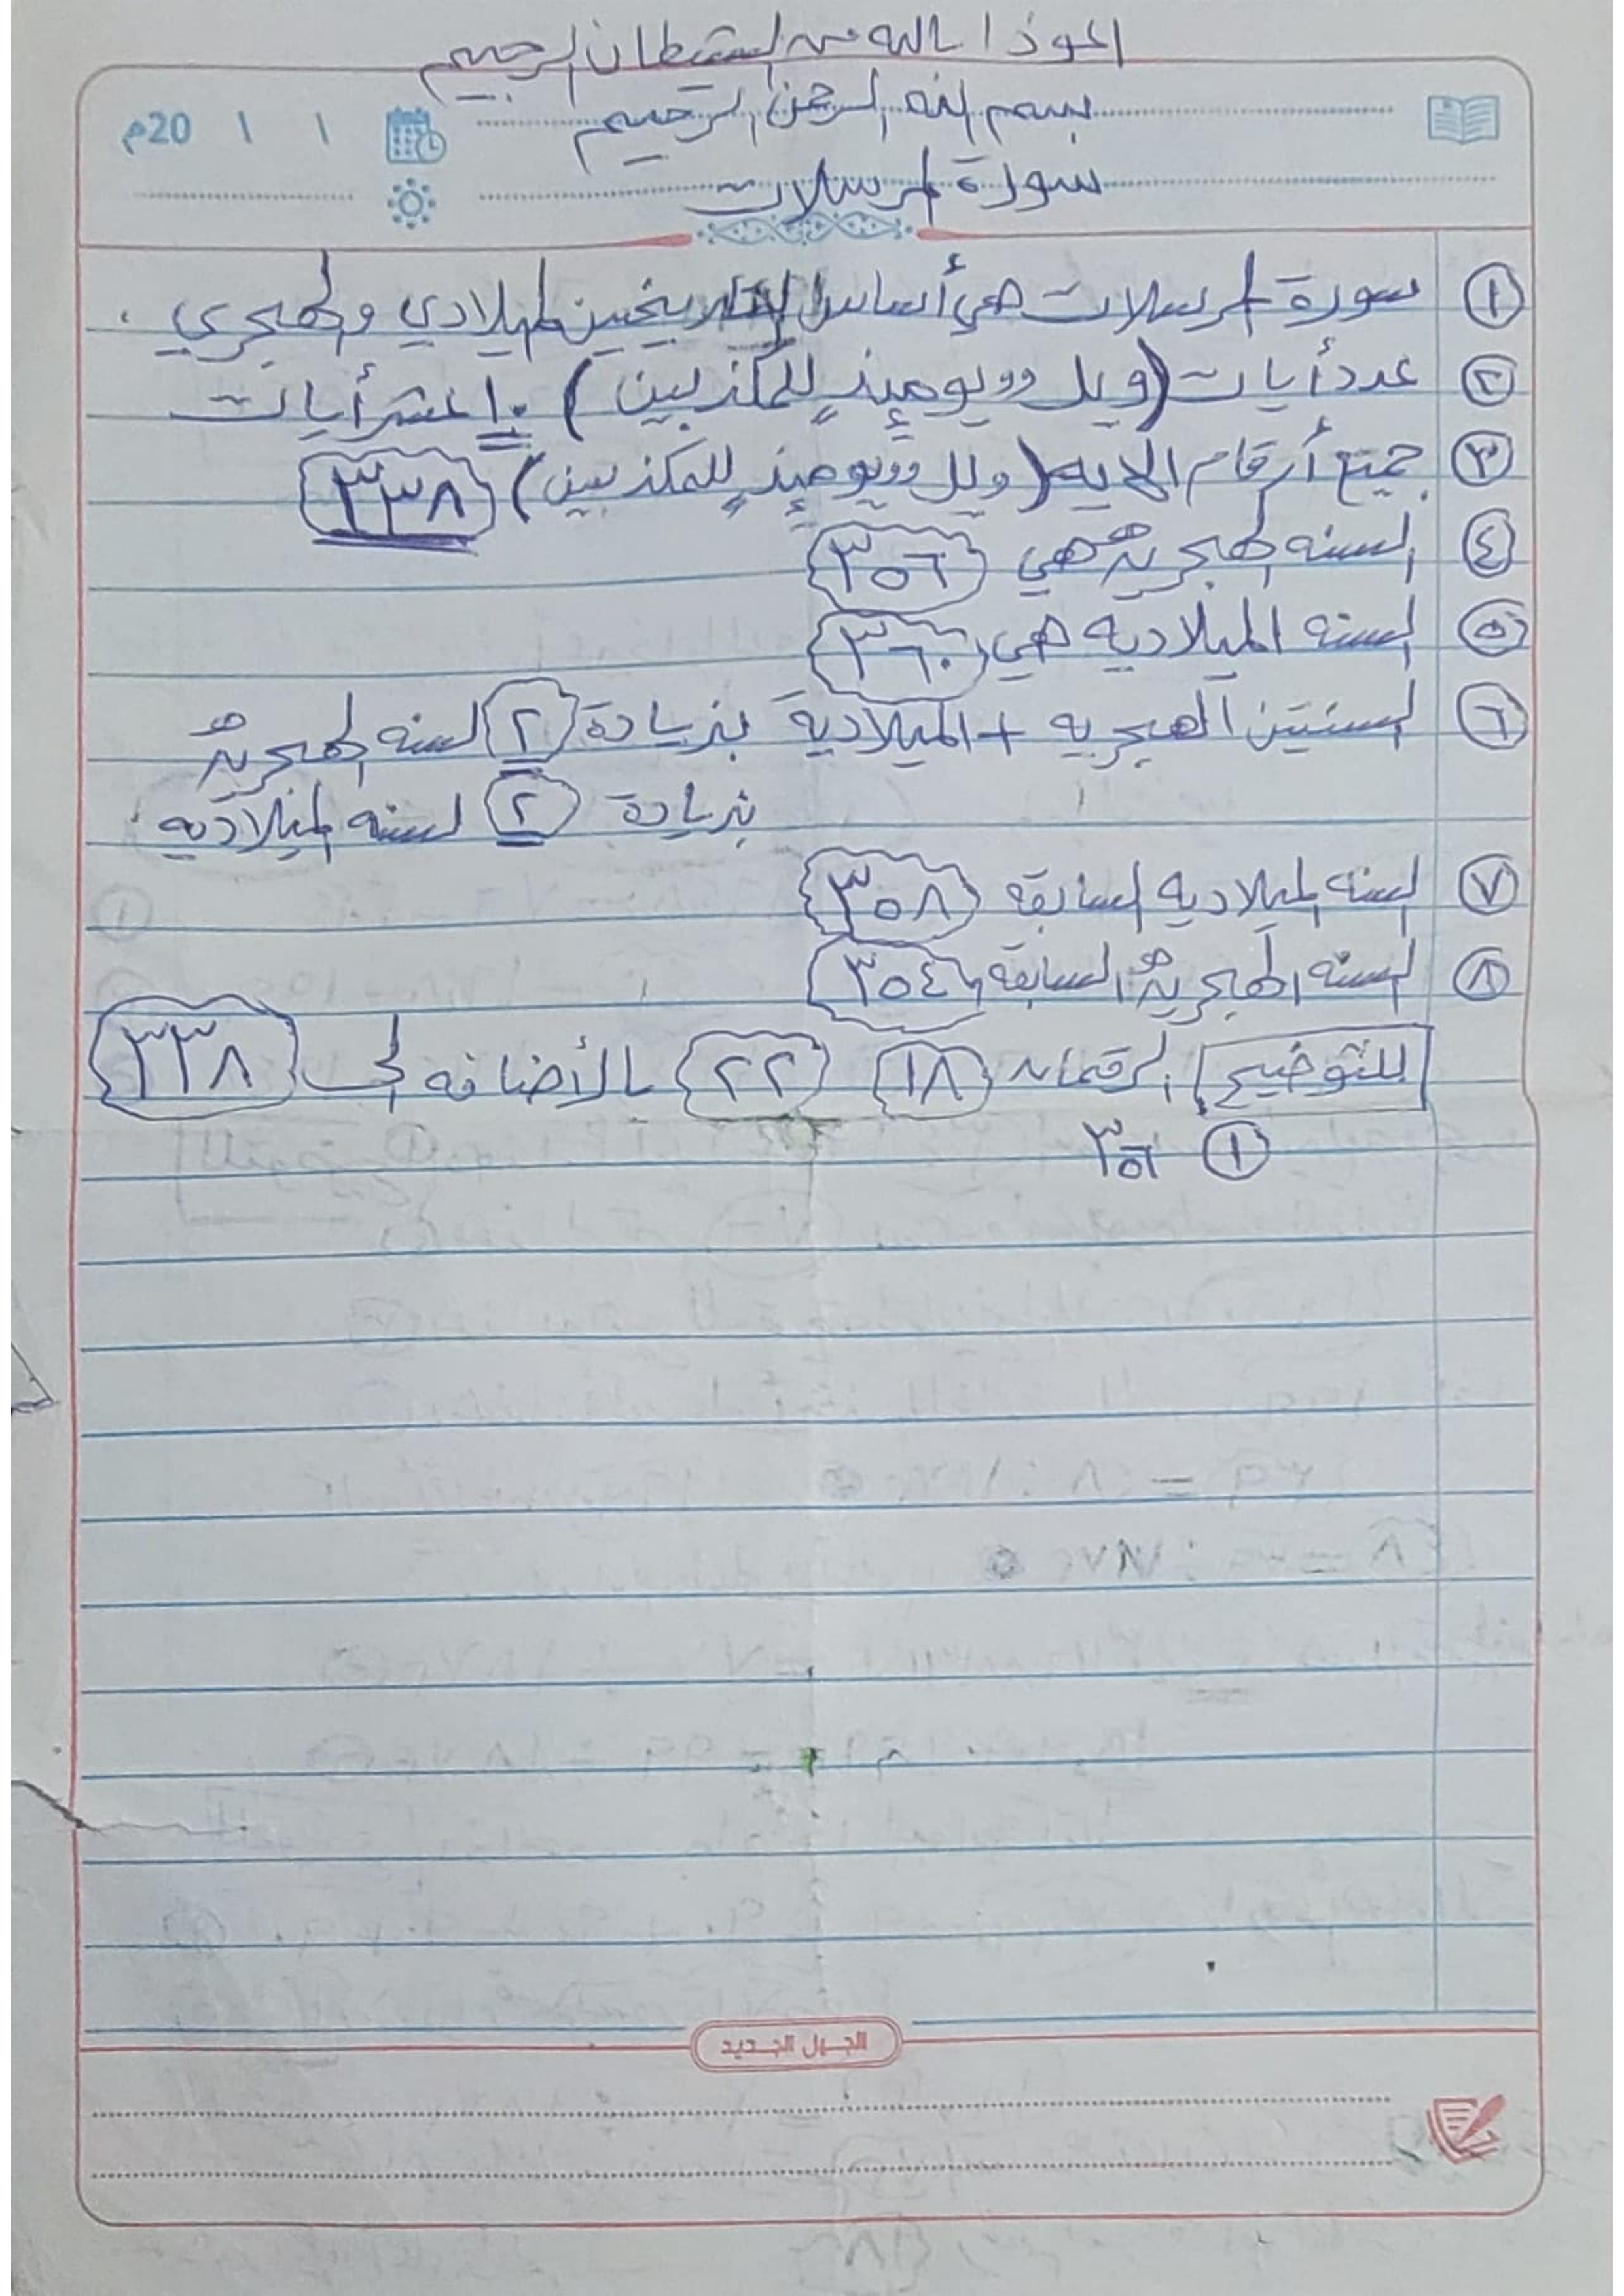 اعوذ بالله من الشيطان الرجيم
بسم الله الرحمن الرحيم
20م / /
سورة المرسلات
١ سورة المرسلات هي أساس التاريخين الميلادي والهجري .
٢ عدد أيات (ويل يومئذٍ للمكذبين) ١٠ عشر أيات
٣ جميع أرقام الايه (ويل يومئذٍ للمكذبين) ٣٣٨
٤ السنه الهجريه هي ٣٥٦
٥ السنه الميلاديه هي ٣٦٠
٦ السنتين الهجريه + الميلادية بزيادة ٢ السنه الهجريه
بزيادة ٢ السنه الميلاديه
٧ السنه الميلاديه السابقه ٣٥٨
٨ السنه الهجريه السابقه ٣٥٤
للتوضيح الرقمان ١٨ ٢٢ بالأضافه الى ٣٣٨
١ ٣٥٦
الجيل الجديد